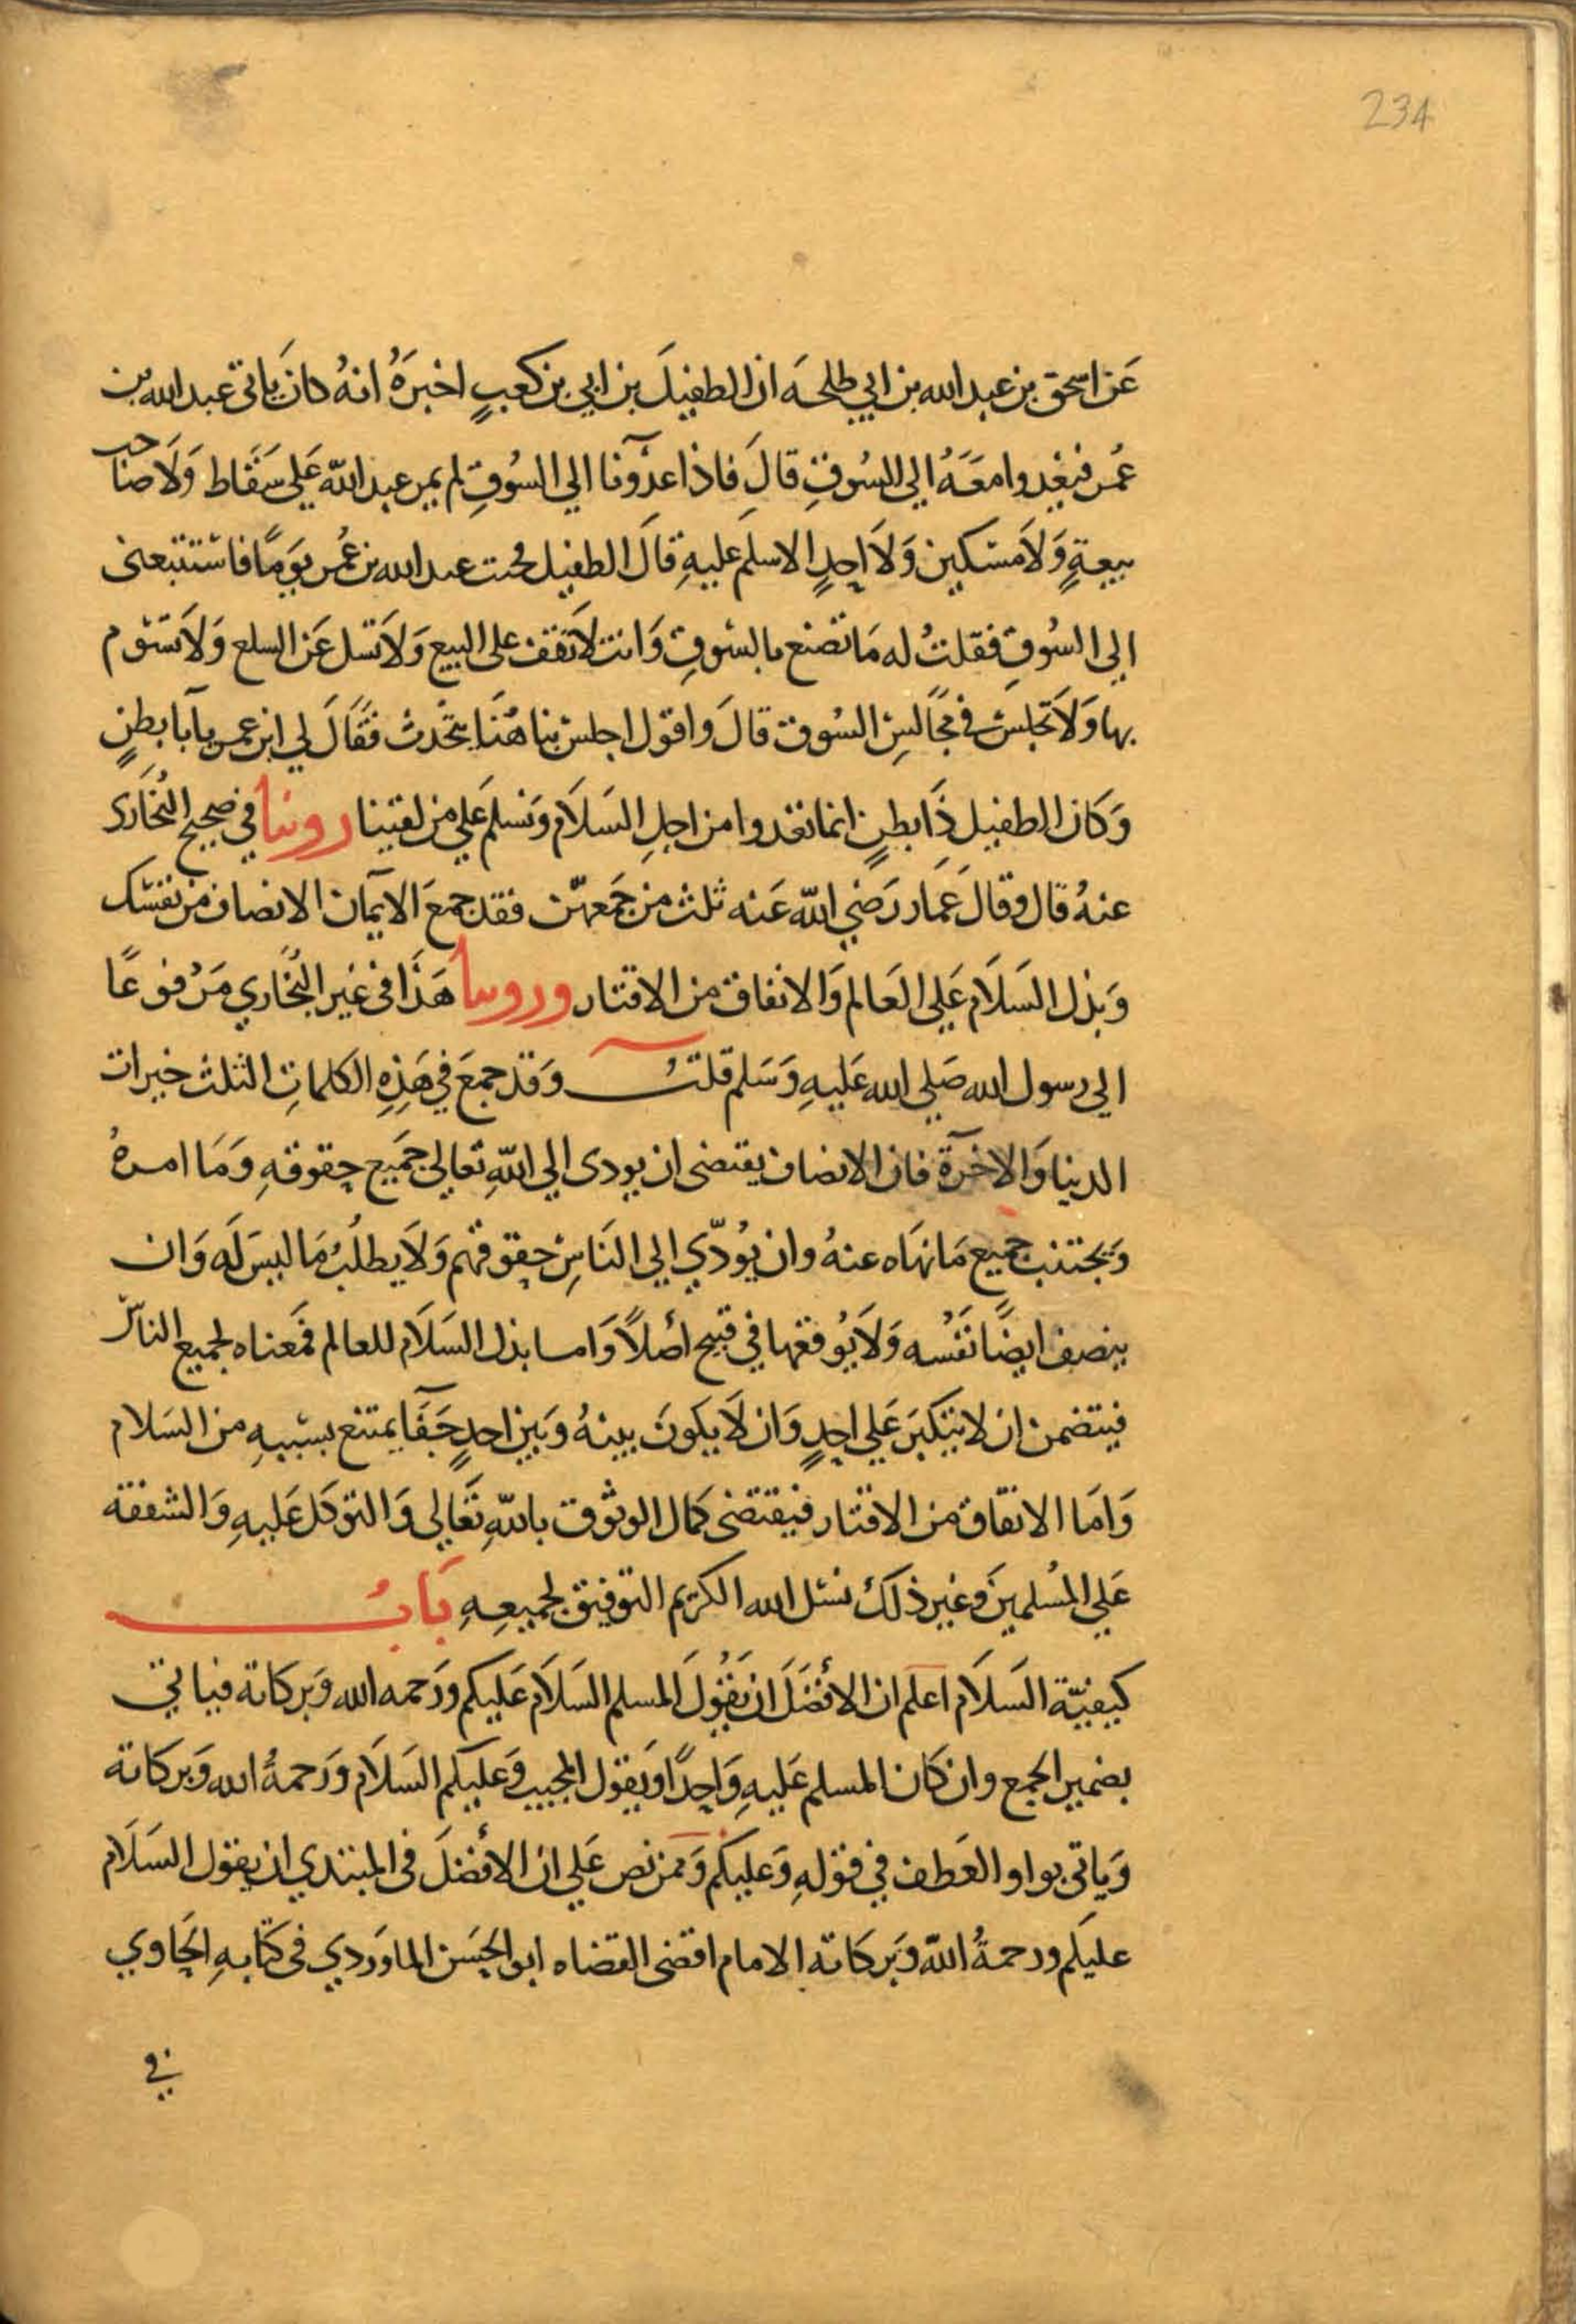 234
عَن اسحق بن عبد الله بن ابي طلحَه ان الطفيلَ بن ابي بن كعبٍ اخبرَهُ انهُ كان يَاتى عبد الله بن
عُمر فيغدوا معَهُ الى السُوقِ قالَ فاذا غدَونا الي السُوقِ لم يمر عبد الله عَلي سَقَاط وَلَا صاحب
بيعةٍ وَلَا مسكين وَلَا احدٍ الا سلم عليهِ قالَ الطفيل فجئت عبد الله بن عُمر يومًا فاستتبعنى
الي السُوقِ فقلتُ له مَا تصنع بالسُوقِ وَانت لَا تقف على البيع وَلَا تسل عَن السلع وَلَا تسُوم
بها وَلَا تجلس في مجَالسِ السُوق قالَ واقول اجلس بنا هُنَا نتحَدث فقَالَ لي ابن عمر يا أبا بطنٍ
وَكَان الطفيل ذَا بطنٍ انما نغدوا من اجلِ السَلَام وَنسلم عَلي من لقينا روينا في صحيح البُخَاري
عنهُ قال وقالَ عَمَار رَضي الله عَنه ثلث من جَمعهُن فقد جمعَ الايمَان الانصاف من نفسك
وَبذل السَلَام عَلي العَالم وَالانفاق من الاقتار وروينا هَذَا في غَير البُخَاري مَرفوعًا
الي رسول الله صَلي الله عَليهِ وَسَلم قلتُ وَقد جمعَ في هَذِهِ الكلماتِ الثلث خيرات
الدنيا وَالاخرَة فان الانصاف يقتضى ان يودى الي اللهِ تعَالي جَميع حقوقهِ وَمَا امرهُ
وَيجتنب جميع مَا نهَاه عنهُ وان يُودّي الي النَاسِ حقوقهم وَلَا يطلُبُ مَا ليسَ لَه وَان
ينصف ايضًا نَفسُه وَلَا يُوقعها في قبيح اصلاً وَاما بذل السَلَام للعالم فمَعناه لجميع الناس
فيتضمن ان لا يتكبرَ عَلي احدٍ وَان لَا يكونَ بينهُ وَبَين احدٍ جَفَا يمتنع بسببهِ من السَلام
وَامَا الانفَاق من الاقتار فيقتضى كمَال الوثوق باللهِ تعَالي وَالتوكل عَليهِ وَالشفقة
عَلي المُسلمينَ وَغيرِ ذلكَ نسئل الله الكريم التوفيق لجميعِهِ بَابُ
كيفيّة السَلَام اعلم ان الأفضَلَ ان يَقُولَ المسلم السَلَام عَليكم ورَحمه الله وَبركاتة فياتي
بضمير الجمع وان كَان المسلم عَليهِ وَاحِدًا ويَقول المجيب وَعليكم السَلَام ورَحمةُ الله وَبركاتة
وَياتى بواو العَطف في قولهِ وَعليكم وَممن نص عَلي ان الأفضلَ في المبتدي ان يقول السَلَام
عليكم ورحمةُ الله وَبَركاته الامام اقضى القضاه ابو الحسَن الماوَردي في كتابهِ الحَاوي
في